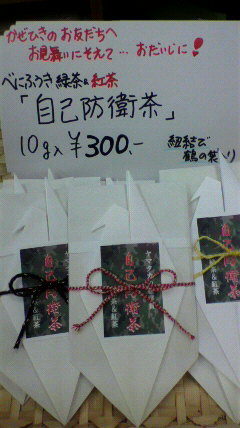 かぜひきのお友だちへ
お見舞いにそえて…おだいじに!
べにふうき緑茶&紅茶
「自己防衛茶」
10g入 ¥300.-
紐結び
鶴の袋入り
自己防衛茶
自己防衛茶
&紅茶